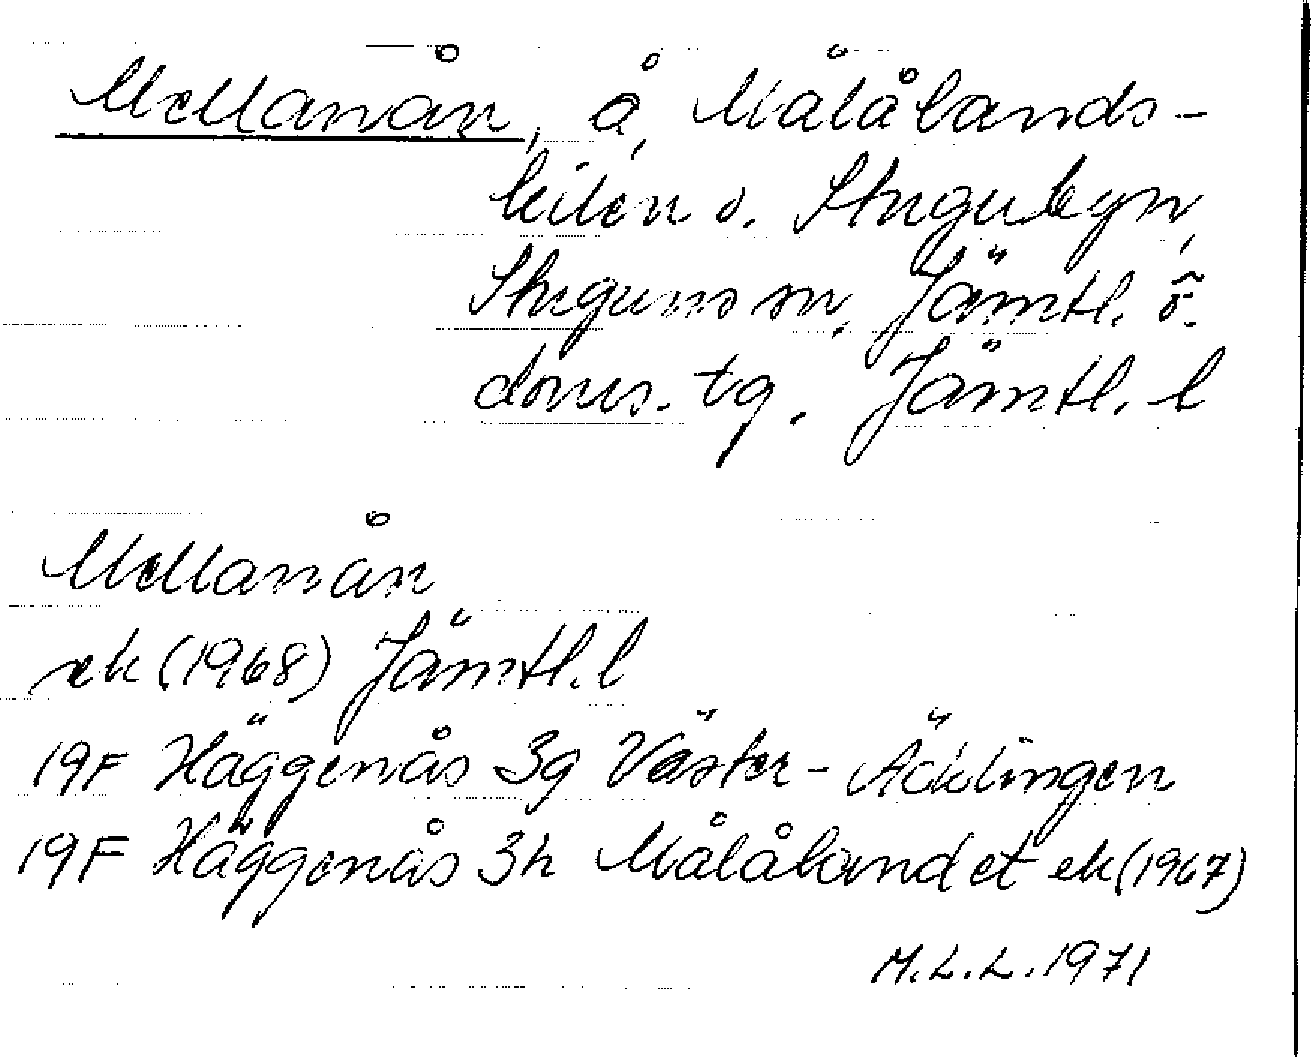 Mellanån, å, Målålands-
kilen o. Stugubyn,
Stuguns sn, Jämtl. ö.
doms. tg, Jämtl. l
Mellanån
ek (1968) Jämtl. l
19F Häggenås 3g Väster-Acklingen
19F Häggenås 3h Målålandet ek (1967)
M.L.L. 1971